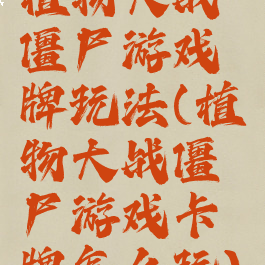 植物大战
僵尸游戏
牌玩法(植
物大战僵
尸游戏卡
牌怎么玩)